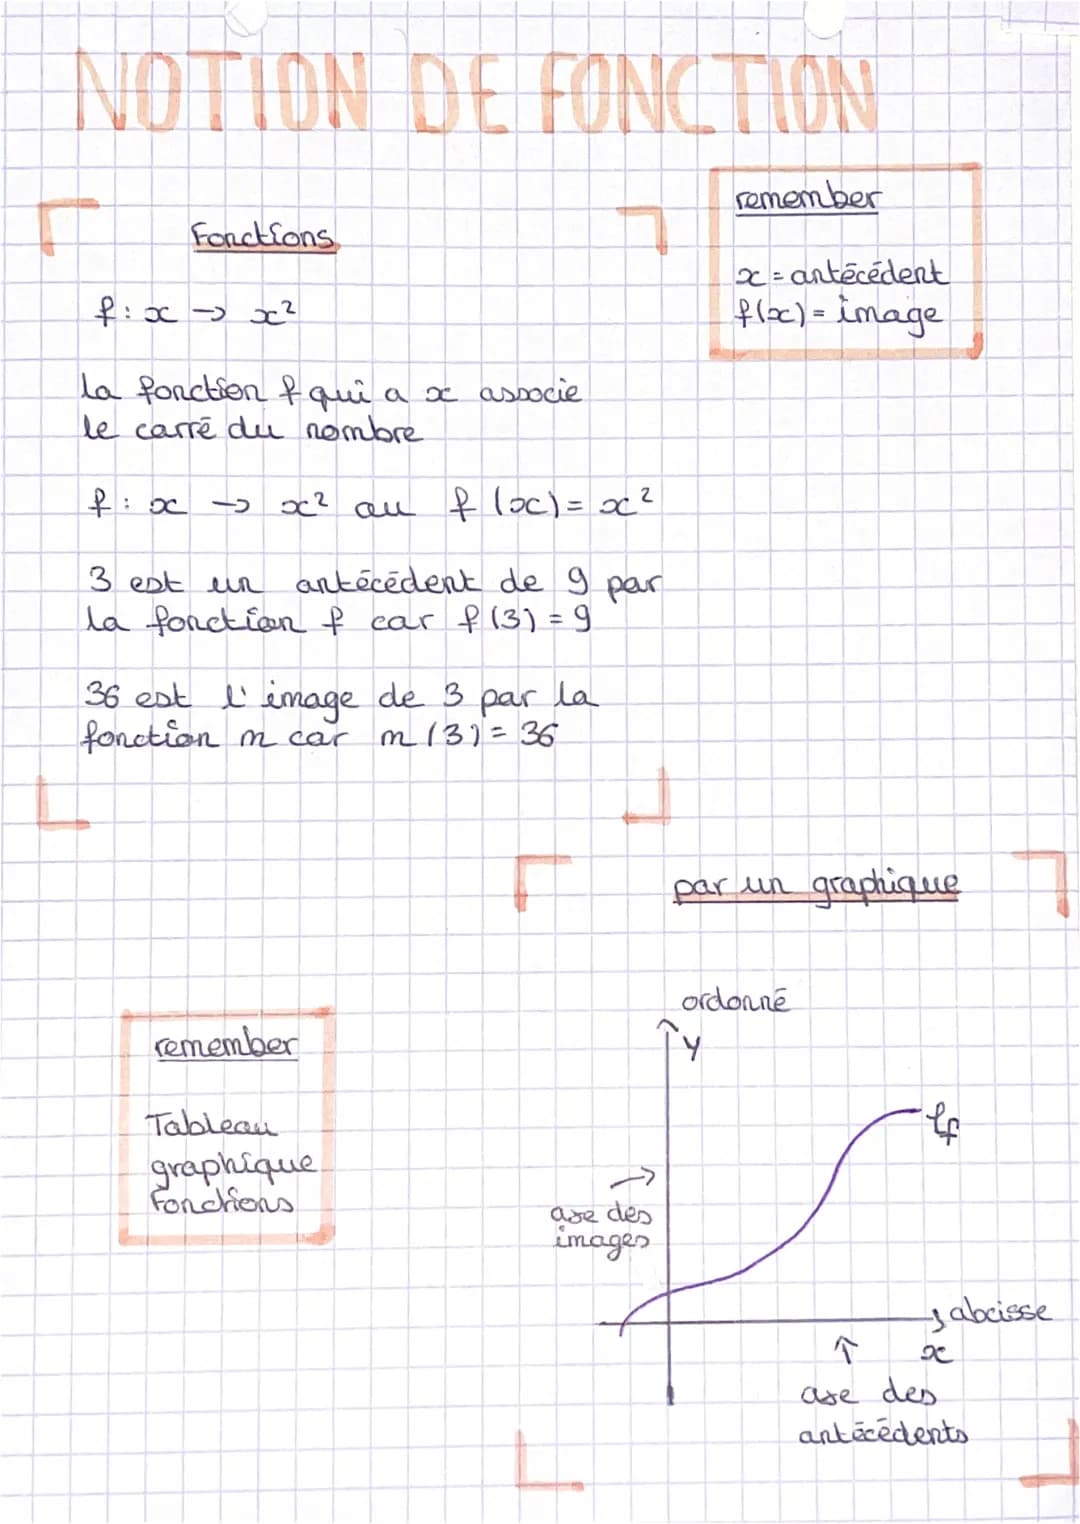 NOTION DE FONCTION
remember
x = antécédent
f(x) = image
Fonctions
f : x → x²
la fonction f qui a x associe
le carré du nombre
f : x → x² ou f (x) = x²
3 est un antécédent de 9 par
la fonction f car f (3) = 9
36 est l'image de 3 par la
fonction m car m (3) = 36
par un graphique
remember
Tableau
graphique
Fonctions
ordonné
y
Cf
→
axe des
images
abcisse
↑ x
axe des
antécédents